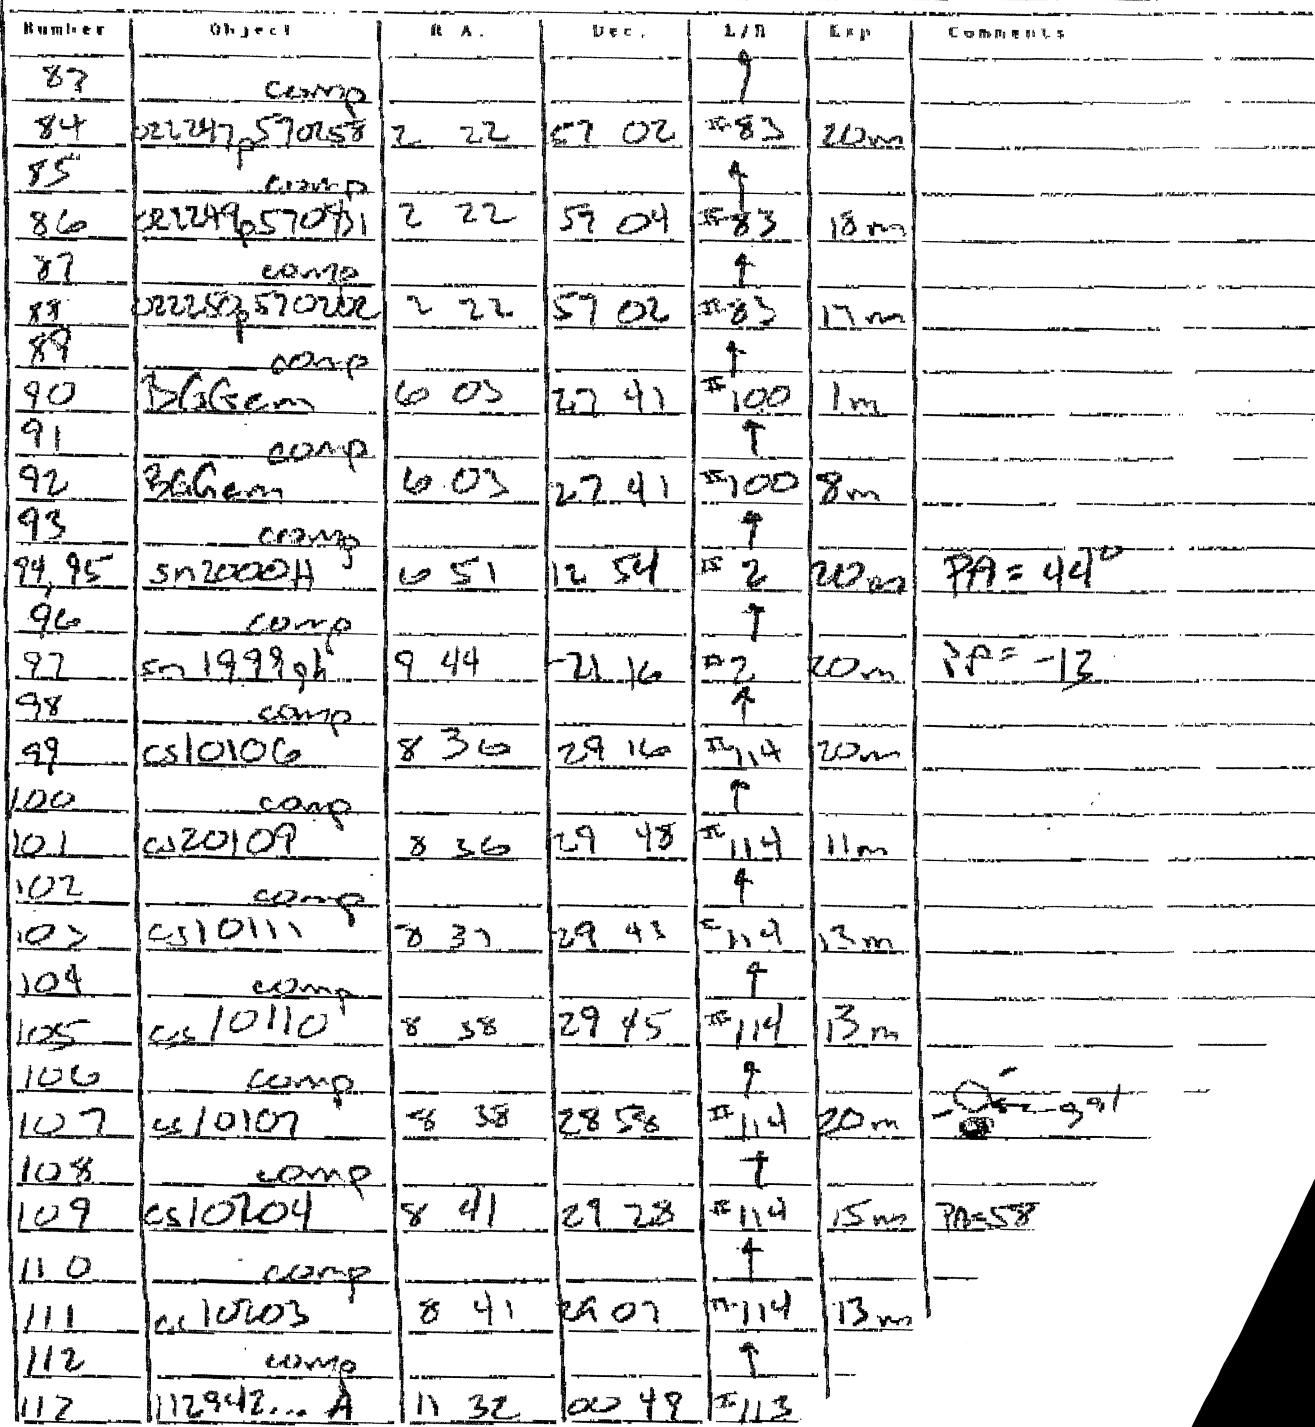 Number Object R A. Dec. L/R Exp Comments
83 comp ↑
84 022247p570258 2 22 57 02 II-83 20m
85 comp ↑
86 2 22 57 04 II-83 18m
87 comp ↑
88 2 22 57 02 II-83 17m
89 comp ↑
90 BGGem 6 03 27 41 II 100 1m
91 comp ↑
92 BGGem 6 03 27 41 II 100 8m
93 comp ↑
94,95 sn2000H 6 51 12 54 2 20m PA = 44°
96 comp ↑
97 sn1999gh 9 44 -21 16 2 20m PA = -13
98 comp ↑
99 cs10106 8 36 29 16 II 114 20m
100 comp ↑
101 cs20109 8 36 29 48 II 114 11m
102 comp ↑
103 cs10111 8 37 29 43 114 13m
104 comp ↑
105 cs10110 8 38 29 45 II 114 13m
106 comp ↑
107 cs10107 8 38 28 58 II 114 20m gal
108 comp ↑
109 cs10204 8 41 29 28 II 114 15m PA=58
110 comp ↑
111 cs10203 8 41 29 07 II 114 13m
112 comp ↑
112 112942... A 11 32 00 49 113